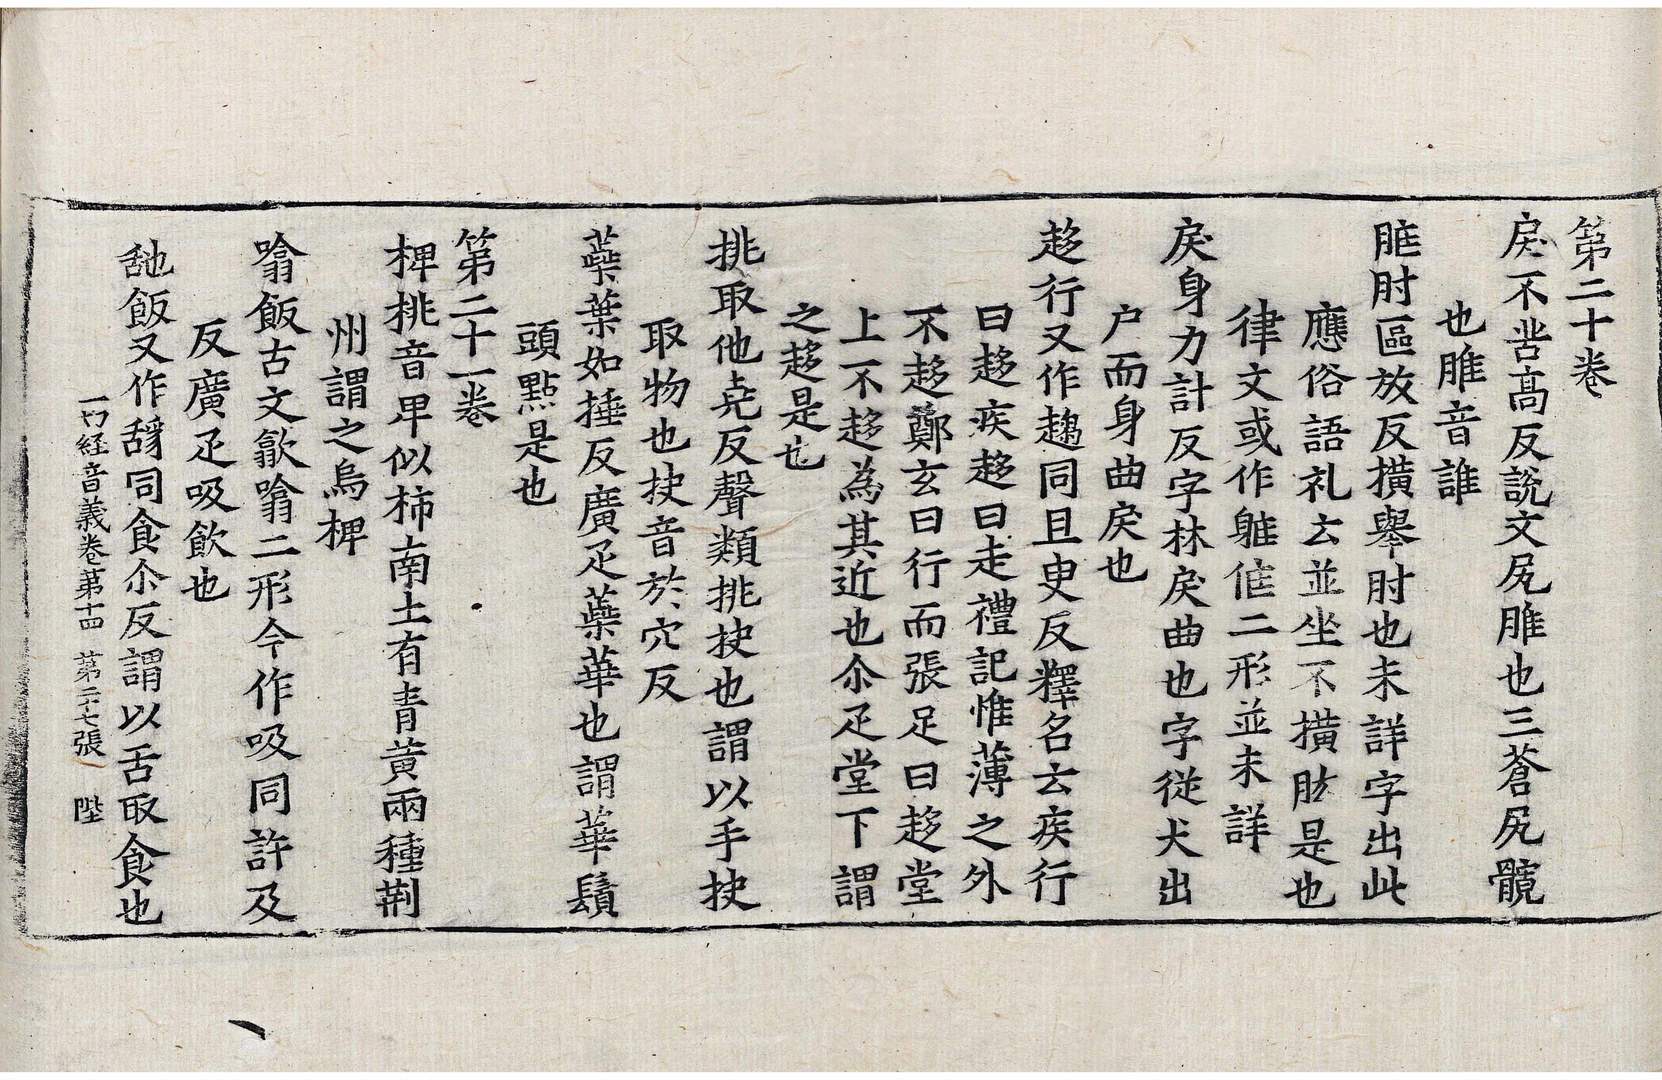 第二十卷
尻不苦高反說文尻脽也三蒼尻髖
也脽音誰
肶肘區放反撗舉肘也未詳字出此
應俗語礼云並坐不撗肱是也
律文或作軭俇二形並未詳
戾身力計反字林戾曲也字從犬出
户而身曲戾也
趍行又作趨同且臾反釋名云疾行
曰趍疾趍曰走禮記惟薄之外
不趍鄭玄曰行而張足曰趍堂
上不趍為其近也尒疋堂下謂
之趍是也
挑取他尭反聲類挑抉也謂以手抉
取物也抉音於穴反
蘂葉如捶反廣疋蘂華也謂華鬚
頭點是也
第二十一卷
椑桃音卑似柿南土有青黃兩種荆
州謂之烏椑
噏飯古文歙噏二形今作吸同許及
反廣疋吸飲也
舓飯又作𦧇同食尒反謂以舌取食也
一切經音義卷苐十四 第二十七張 陛